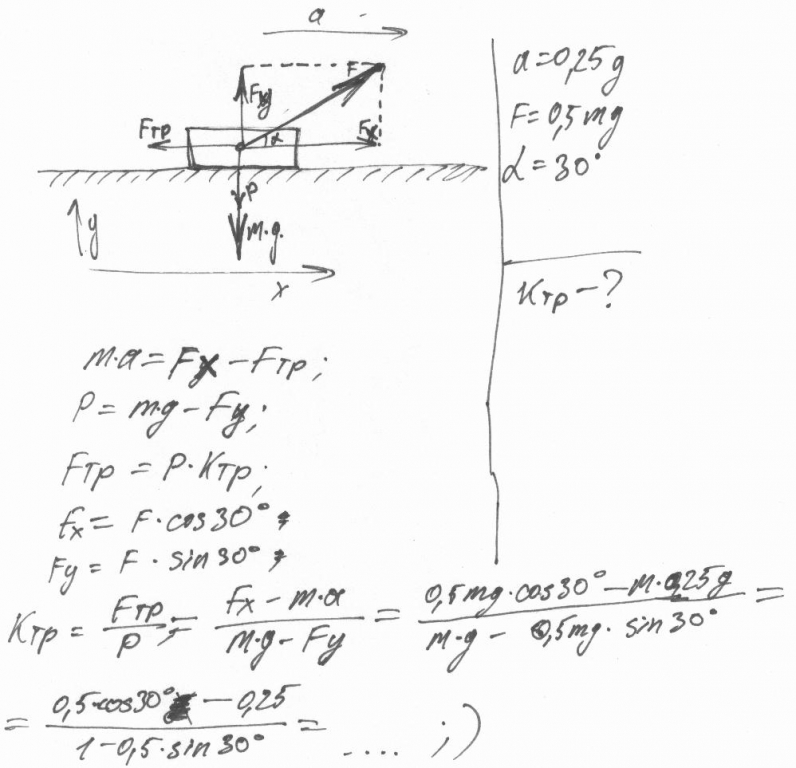 a
F
Fy
Fтр
α
Fx
P
m·g.
y
x
a=0,25g
F=0,5mg
α=30°
Kтр-?
m·a=Fx-Fтр;
P=mg-Fy;
Fтр=P·Kтр;
Fx=F·cos30°;
Fy=F·sin30°;
Kтр=Fтр/P=(Fx-m·a)/(m·g-Fy)=(0,5mg·cos30°-m·0,25g)/(m·g-0,5mg·sin30°)=
=(0,5·cos30°-0,25)/(1-0,5·sin30°)=.... ;)